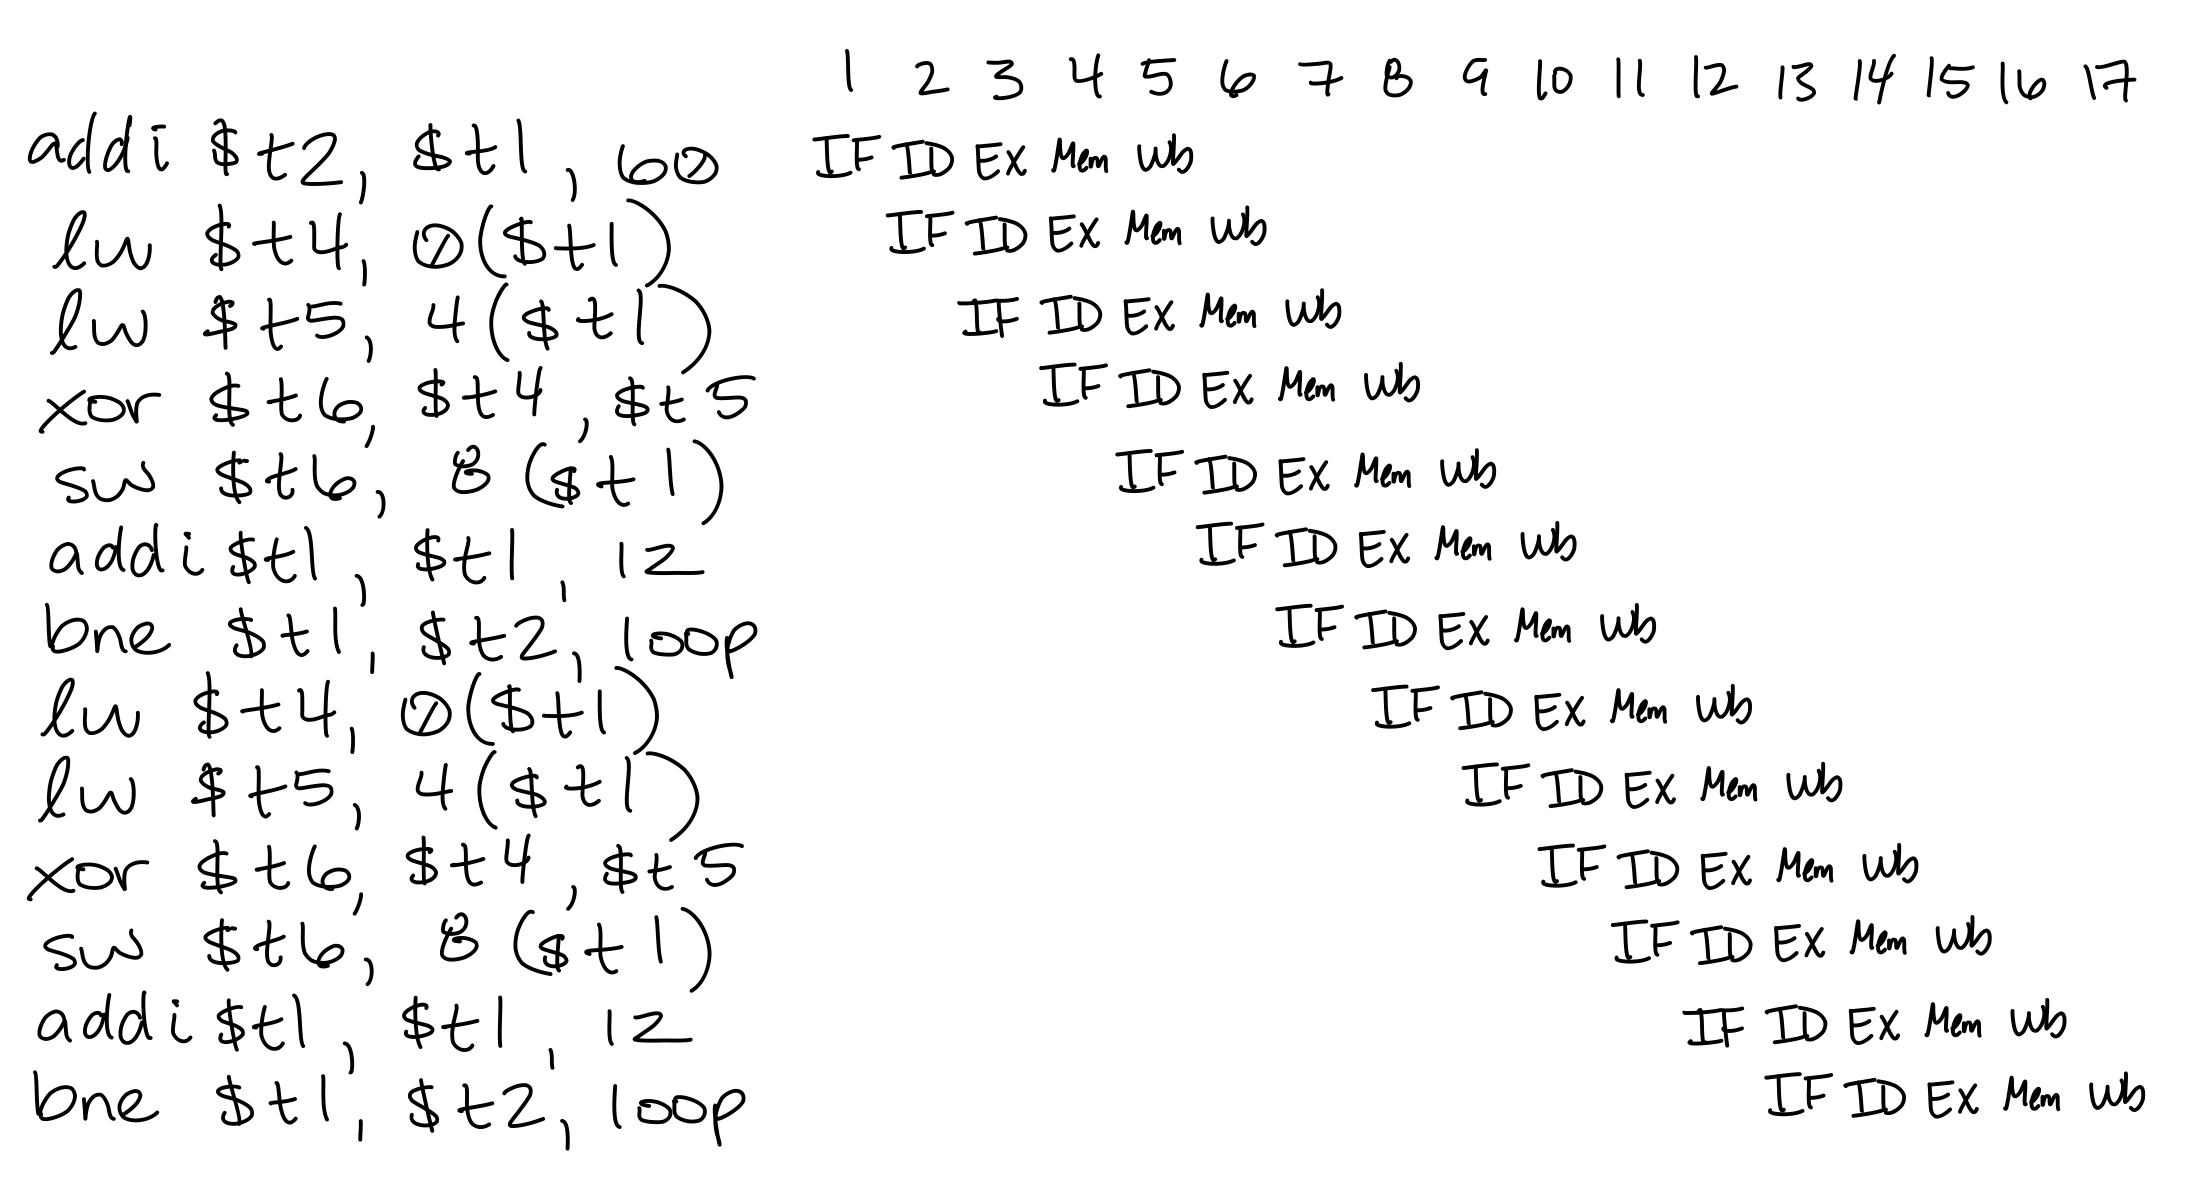 1 2 3 4 5 6 7 8 9 10 11 12 13 14 15 16 17
addi $t2, $t1, 60 IF ID EX Mem Wb
lw $t4, 0($t1) IF ID EX Mem Wb
lw $t5, 4($t1) IF ID EX Mem Wb
xor $t6, $t4, $t5 IF ID EX Mem Wb
sw $t6, 8($t1) IF ID EX Mem Wb
addi $t1, $t1, 12 IF ID EX Mem Wb
bne $t1, $t2, loop IF ID EX Mem Wb
lw $t4, 0($t1) IF ID EX Mem Wb
lw $t5, 4($t1) IF ID EX Mem Wb
xor $t6, $t4, $t5 IF ID EX Mem Wb
sw $t6, 8($t1) IF ID EX Mem Wb
addi $t1, $t1, 12 IF ID EX Mem Wb
bne $t1, $t2, loop IF ID EX Mem Wb